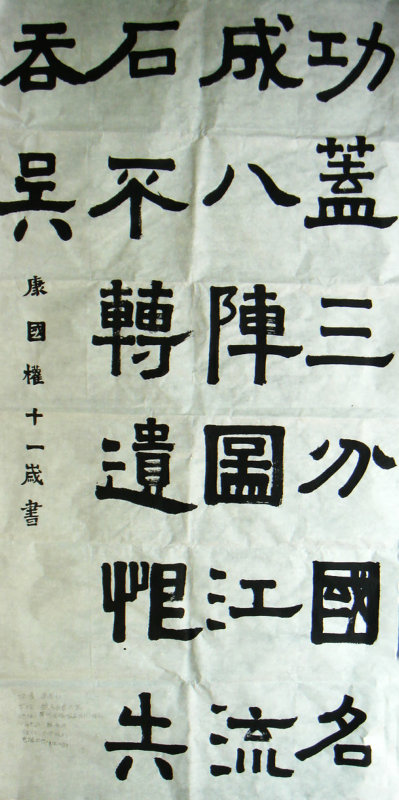 功蓋三分國名
成八陣圖江流
石不轉遺恨失
吞吳
康國權十一歲書